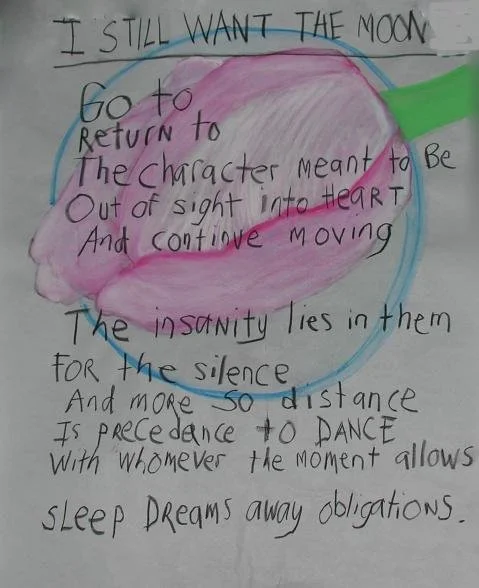 I STILL WANT THE MOON
Go to
Return to
The character meant to Be
Out of sight into HEART
And continue moving
The insanity lies in them
FOR the silence
And more so distance
Is precedance to DANCE
With whomever the moment allows
Sleep Dreams away obligations.